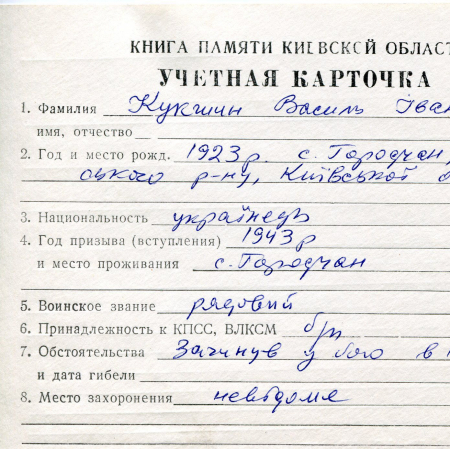 КНИГА ПАМЯТИ КИЕВСКОЙ ОБЛАСТ
УЧЕТНАЯ КАРТОЧКА
1. Фамилия Кукшин Василь Іван
имя, отчество
2. Год и место рожд. 1923р. с. Городчан,
ського р-ну, Київської о
3. Национальность українець
4. Год призыва (вступления) 1943р
и место проживания с. Городчан
5. Воинское звание рядовий
6. Принадлежность к КПСС, ВЛКСМ б/п
7. Обстоятельства Загинув у бою в
и дата гибели
8. Место захоронения невідоме